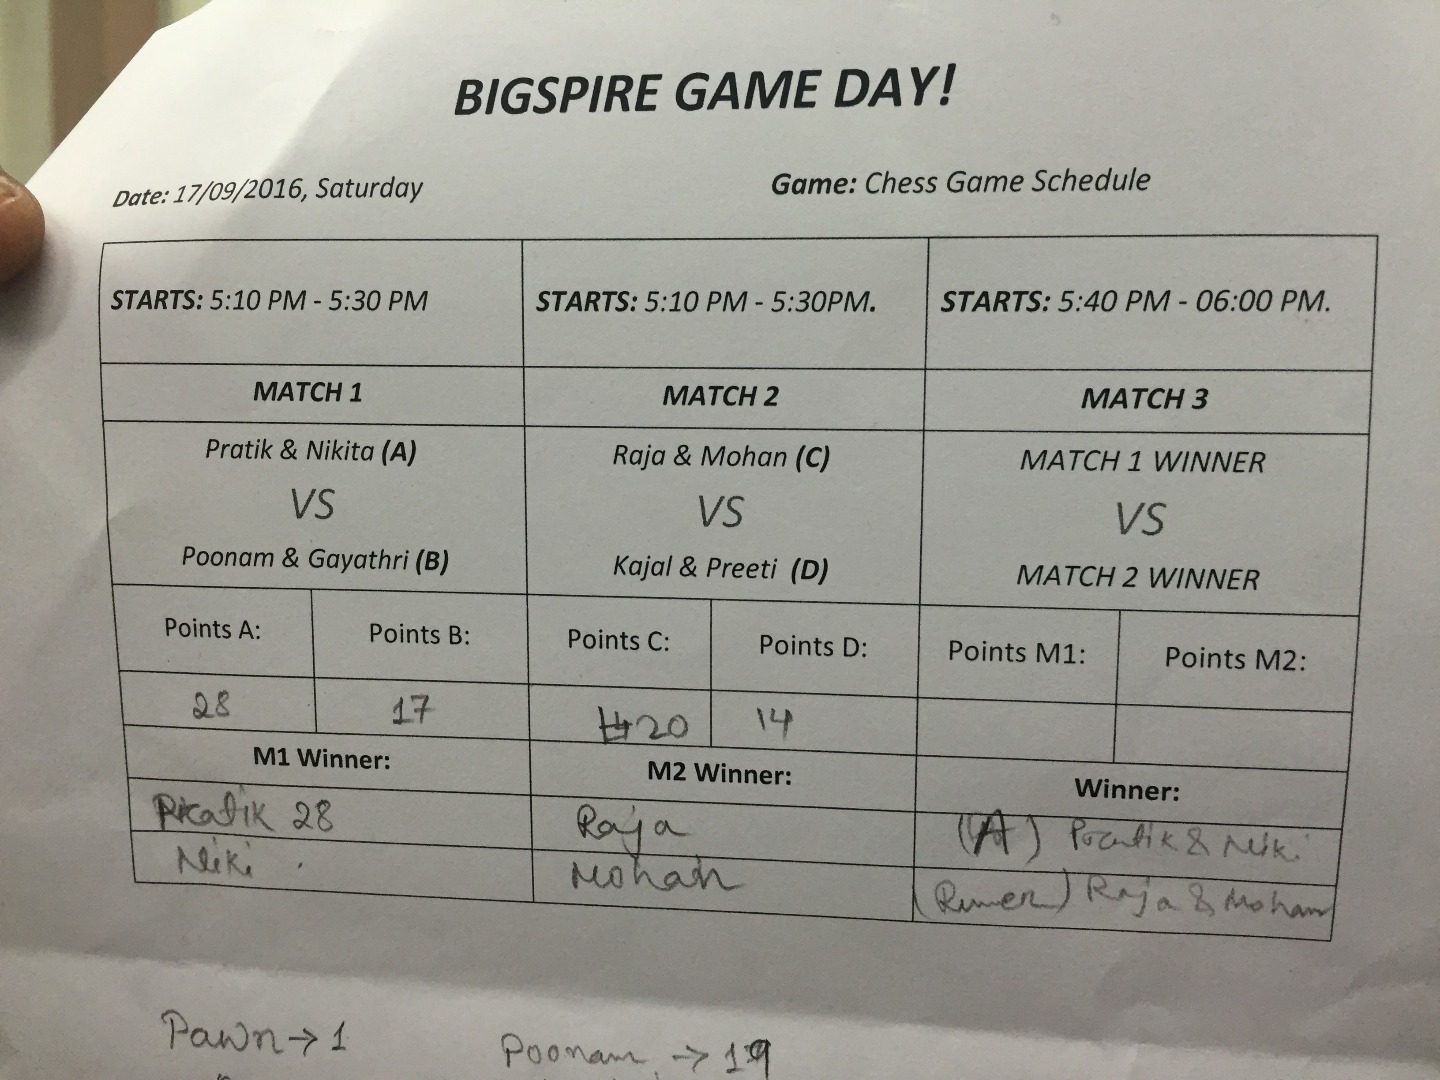 BIGSPIRE GAME DAY!
Date: 17/09/2016, Saturday Game: Chess Game Schedule
STARTS: 5:10 PM - 5:30 PM STARTS: 5:10 PM - 5:30PM. STARTS: 5:40 PM - 06:00 PM.
MATCH 1 MATCH 2 MATCH 3
Pratik & Nikita (A) Raja & Mohan (C) MATCH 1 WINNER
VS VS VS
Poonam & Gayathri (B) Kajal & Preeti (D) MATCH 2 WINNER
Points A: Points B: Points C: Points D: Points M1: Points M2:
28 17 20 14
M1 Winner: M2 Winner: Winner:
Pratik 28 Raja (A) Pratik & Niki
Niki Mohan (Runner) Raja & Mohan
Pawn → 1 Poonam → 19